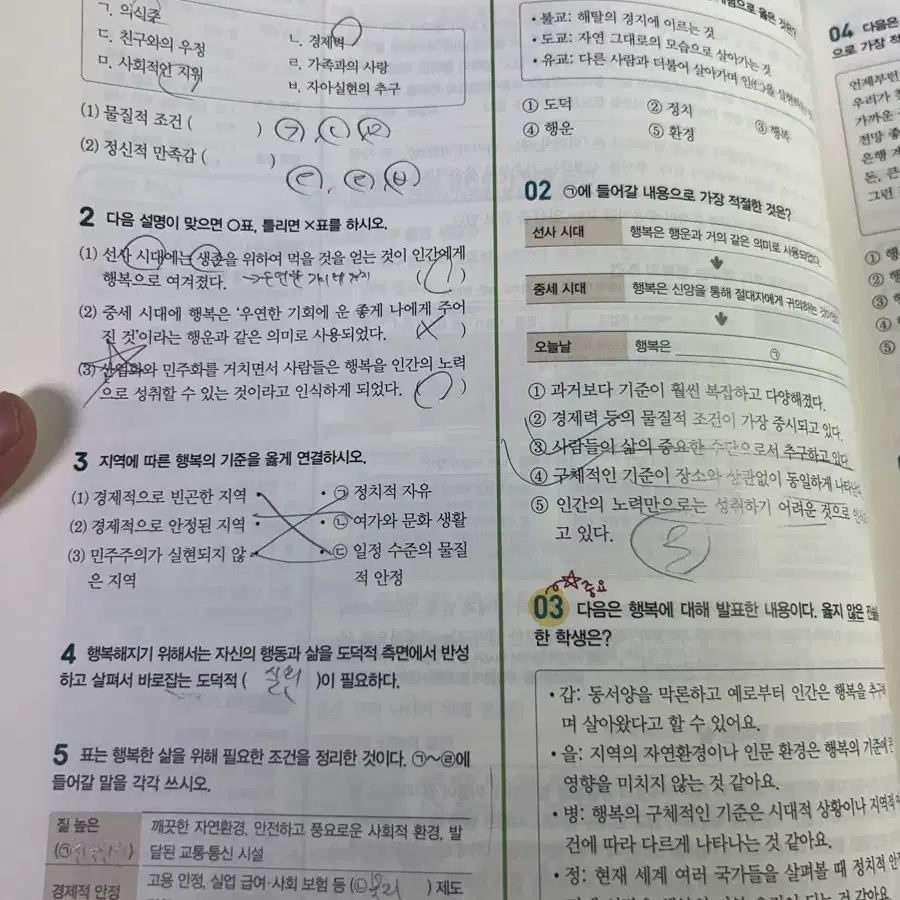 ㄱ. 의식주
ㄴ. 경제력
ㄷ. 친구와의 우정
ㄹ. 가족과의 사랑
ㅁ. 사회적인 지위
ㅂ. 자아실현의 추구
(1) 물질적 조건 ( ) ㄱ, ㄴ, ㅁ
(2) 정신적 만족감 ( )
ㄷ, ㄹ, ㅂ
2 다음 설명이 맞으면 ○표, 틀리면 ×표를 하시오.
(1) 선사 시대에는 생존을 위하여 먹을 것을 얻는 것이 인간에게
행복으로 여겨졌다. ( ○ )
(2) 중세 시대에 행복은 '우연한 기회에 운 좋게 나에게 주어
진 것'이라는 행운과 같은 의미로 사용되었다. ( × )
(3) 산업화와 민주화를 거치면서 사람들은 행복을 인간의 노력
으로 성취할 수 있는 것이라고 인식하게 되었다. ( ○ )
3 지역에 따른 행복의 기준을 옳게 연결하시오.
(1) 경제적으로 빈곤한 지역 • • ㉠ 정치적 자유
(2) 경제적으로 안정된 지역 • • ㉡ 여가와 문화 생활
(3) 민주주의가 실현되지 않 • • ㉢ 일정 수준의 물질
은 지역 적 안정
4 행복해지기 위해서는 자신의 행동과 삶을 도덕적 측면에서 반성
하고 살펴서 바로잡는 도덕적 ( )이 필요하다.
5 표는 행복한 삶을 위해 필요한 조건을 정리한 것이다. ㉠~㉣에
들어갈 말을 각각 쓰시오.
질 높은 깨끗한 자연환경, 안전하고 풍요로운 사회적 환경, 발
(㉠ ) 달된 교통·통신 시설
경제적 안정 고용 안정, 실업 급여·사회 보험 등 (㉡ ) 제도
으로 옳은 것은?
• 불교: 해탈의 경지에 이르는 것
• 도교: 자연 그대로의 모습으로 살아가는 것
• 유교: 다른 사람과 더불어 살아가며 인(仁)을
① 도덕 ② 정치 ③ 행복
④ 행운 ⑤ 환경
02 ㉠에 들어갈 내용으로 가장 적절한 것은?
선사 시대 행복은 행운과 거의 같은 의미로 사용되었다.
중세 시대 행복은 신앙을 통해 절대자에게 귀의하는 것이었다
오늘날 행복은 ㉠
① 과거보다 기준이 훨씬 복잡하고 다양해졌다.
② 경제력 등의 물질적 조건이 가장 중시되고 있다.
③ 사람들의 삶의 중요한 수단으로서 추구하고 있다.
④ 구체적인 기준이 장소와 상관없이 동일하게 나타난다
⑤ 인간의 노력만으로는 성취하기 어려운 것으로
고 있다.
중요
03 다음은 행복에 대해 발표한 내용이다. 옳지 않은 진술
한 학생은?
• 갑: 동서양을 막론하고 예로부터 인간은 행복을 추구하
며 살아왔다고 할 수 있어요.
• 을: 지역의 자연환경이나 인문 환경은 행복의 기준에 큰
영향을 미치지 않는 것 같아요.
• 병: 행복의 구체적인 기준은 시대적 상황이나 지역적
건에 따라 다르게 나타나는 것 같아요.
• 정: 현재 세계 여러 국가들을 살펴볼 때 정치적 안
04 다음은
으로 가장 적
언제부턴
우리가 찾
가까운
전망 좋
은행 계
돈, 큰
그런
① 행
② 행
③
④
⑤